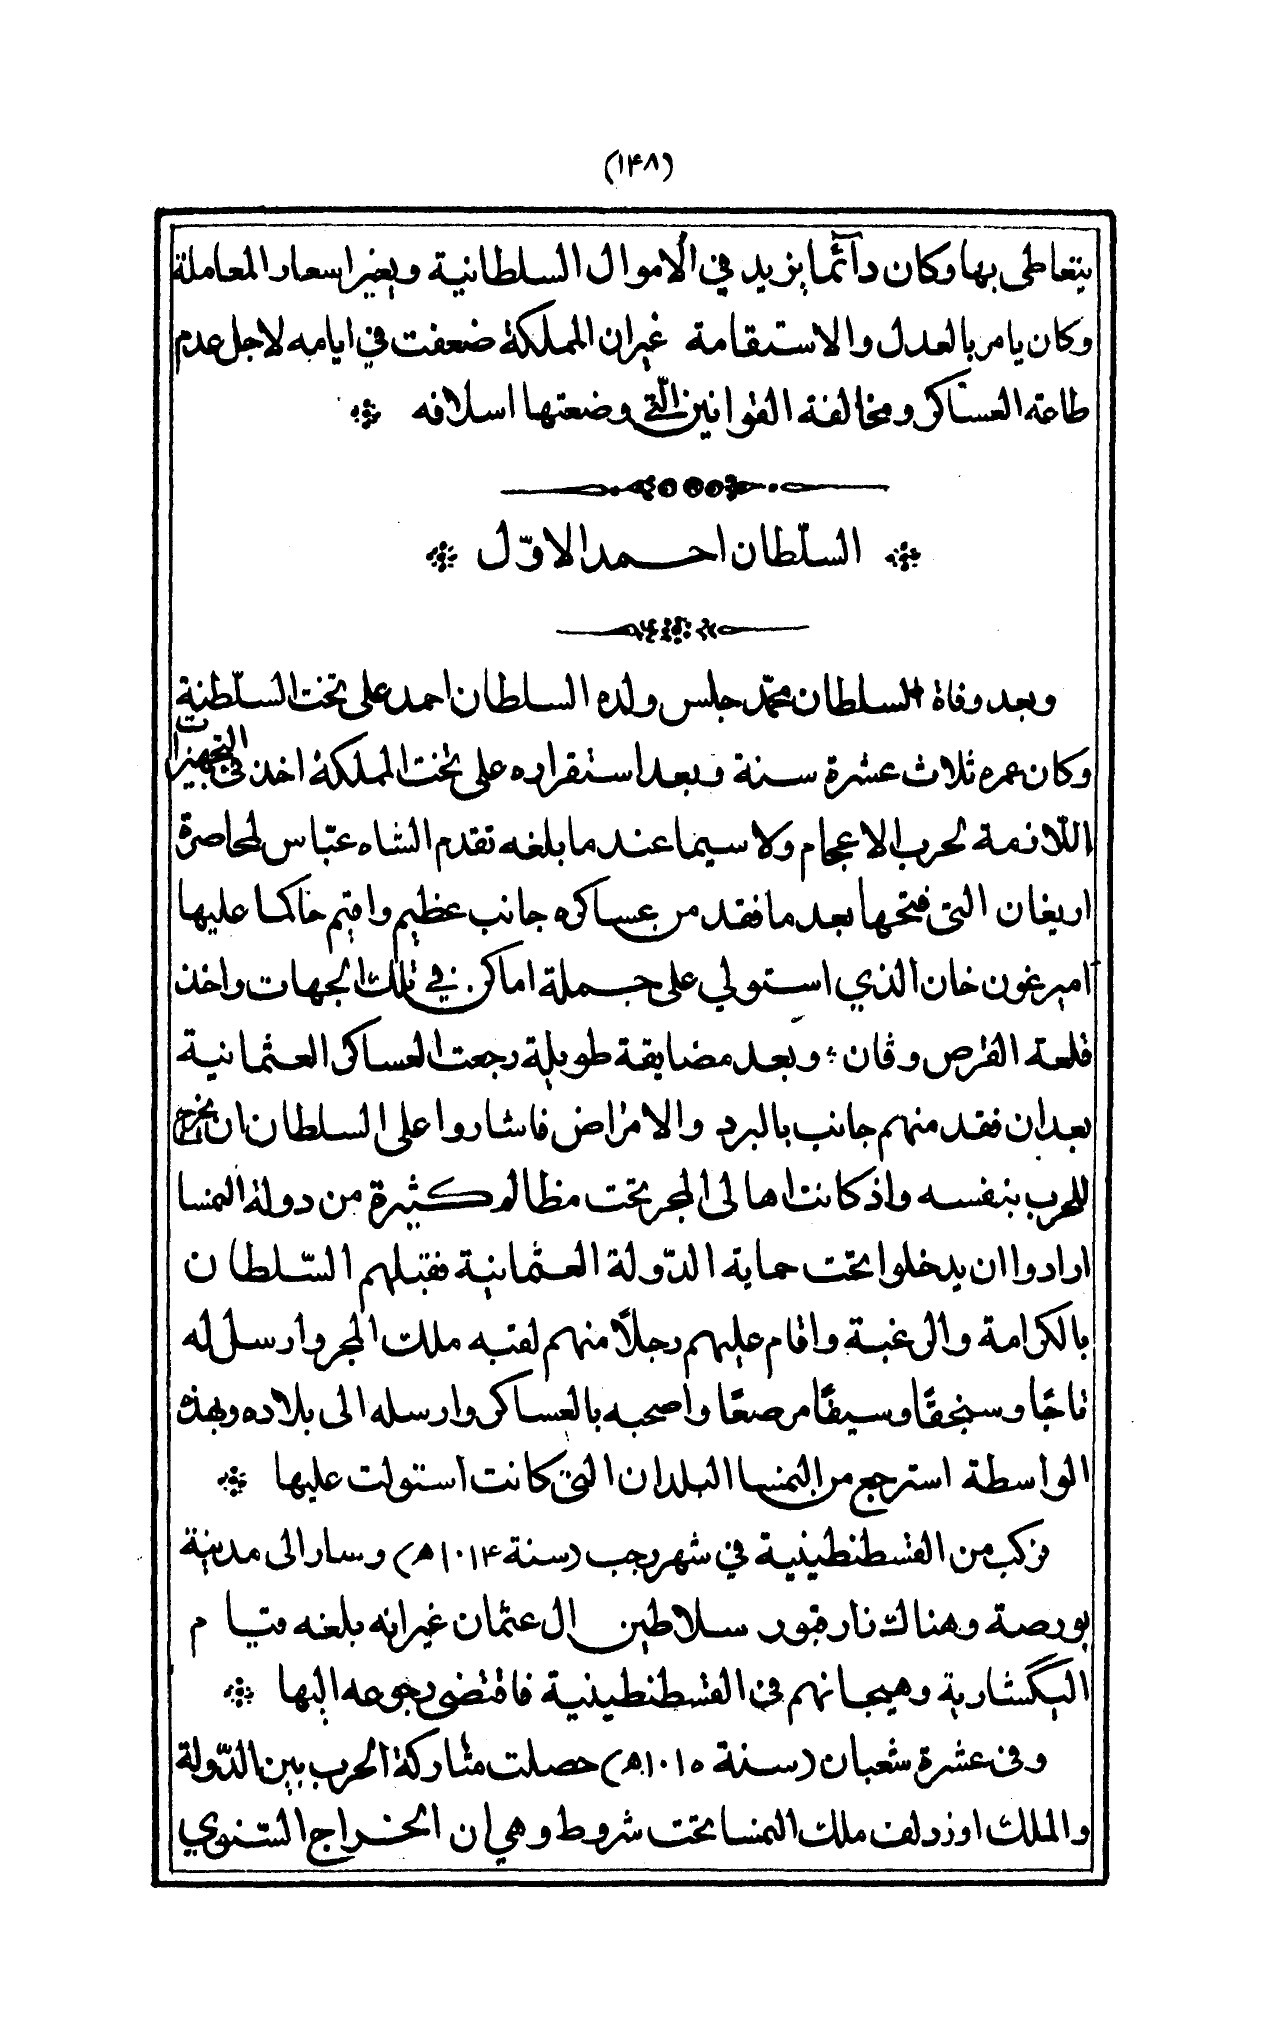 (١٤٨)
يتعاطى بها وكان دآئمًا يزيد في الاموال السلطانية ويغير اسعار المعاملة
وكان يامر بالعدل والاستقامة غير ان المملكة ضعفت في ايامه لاجل عدم
طاعة العساكر ومخالفة القوانين التي وضعتها اسلافه
السلّطان احمد الاوّل
وبعد وفاة السلطان محمّد جلس ولده السلطان احمد على تخت السلّطنة
وكان عمره ثلاث عشرة سنة وبعد استقراره على تخت المملكة اخذ في التجهيزات
اللّازمة لحرب الاعجام ولا سيما عند ما بلغه تقدم الشاه عبّاس لمحاصرة
اريغان التي فتحها بعد ما فقد من عساكره جانب عظيم واقيم حاكما عليها
امير غون خان الذي استولي على جملة اماكن في تلك الجهات واخذ
قلعة القرص وقان وبعد مضايقة طويلة رجعت العساكر العثمانية
بعد ان فقد منهم جانب بالبرد والامراض فاشاروا على السلطان ان يخرج
للحرب بنفسه واذ كانت اهالي المجر تحت مظالم كثيرة من دولة النمسا
ارادوا ان يدخلوا تحت حماية الدّولة العثمانية فقبلهم السّلطان
بالكرامة والرغبة واقام عليهم رجلاً منهم لقبه ملك المجر وارسل له
تاجًا وسنجقًا وسيفًا مرصعًا واصحبه بالعساكر وارسله الى بلاده وبهذه
الواسطة استرجع من النمسا البلدان التي كانت استولت عليها
ركب من القسطنطينية في شهر رجب (سنة ١٠١٤ ھ) وسار الى مدينة
بورصة وهناك زار قبور سلاطين ال عثمان غير انه بلغه قيام
اليكگشارية وهيجانهم في القسطنطينية فاقتضى رجوعه اليها
وفي عشرة شعبان (سنة ١٠١٥ ھ) حصلت متاركة الحرب بين الدّولة
والملك اوزدلف ملك النمسا تحت شروط وهي ان الخراج السّنوي